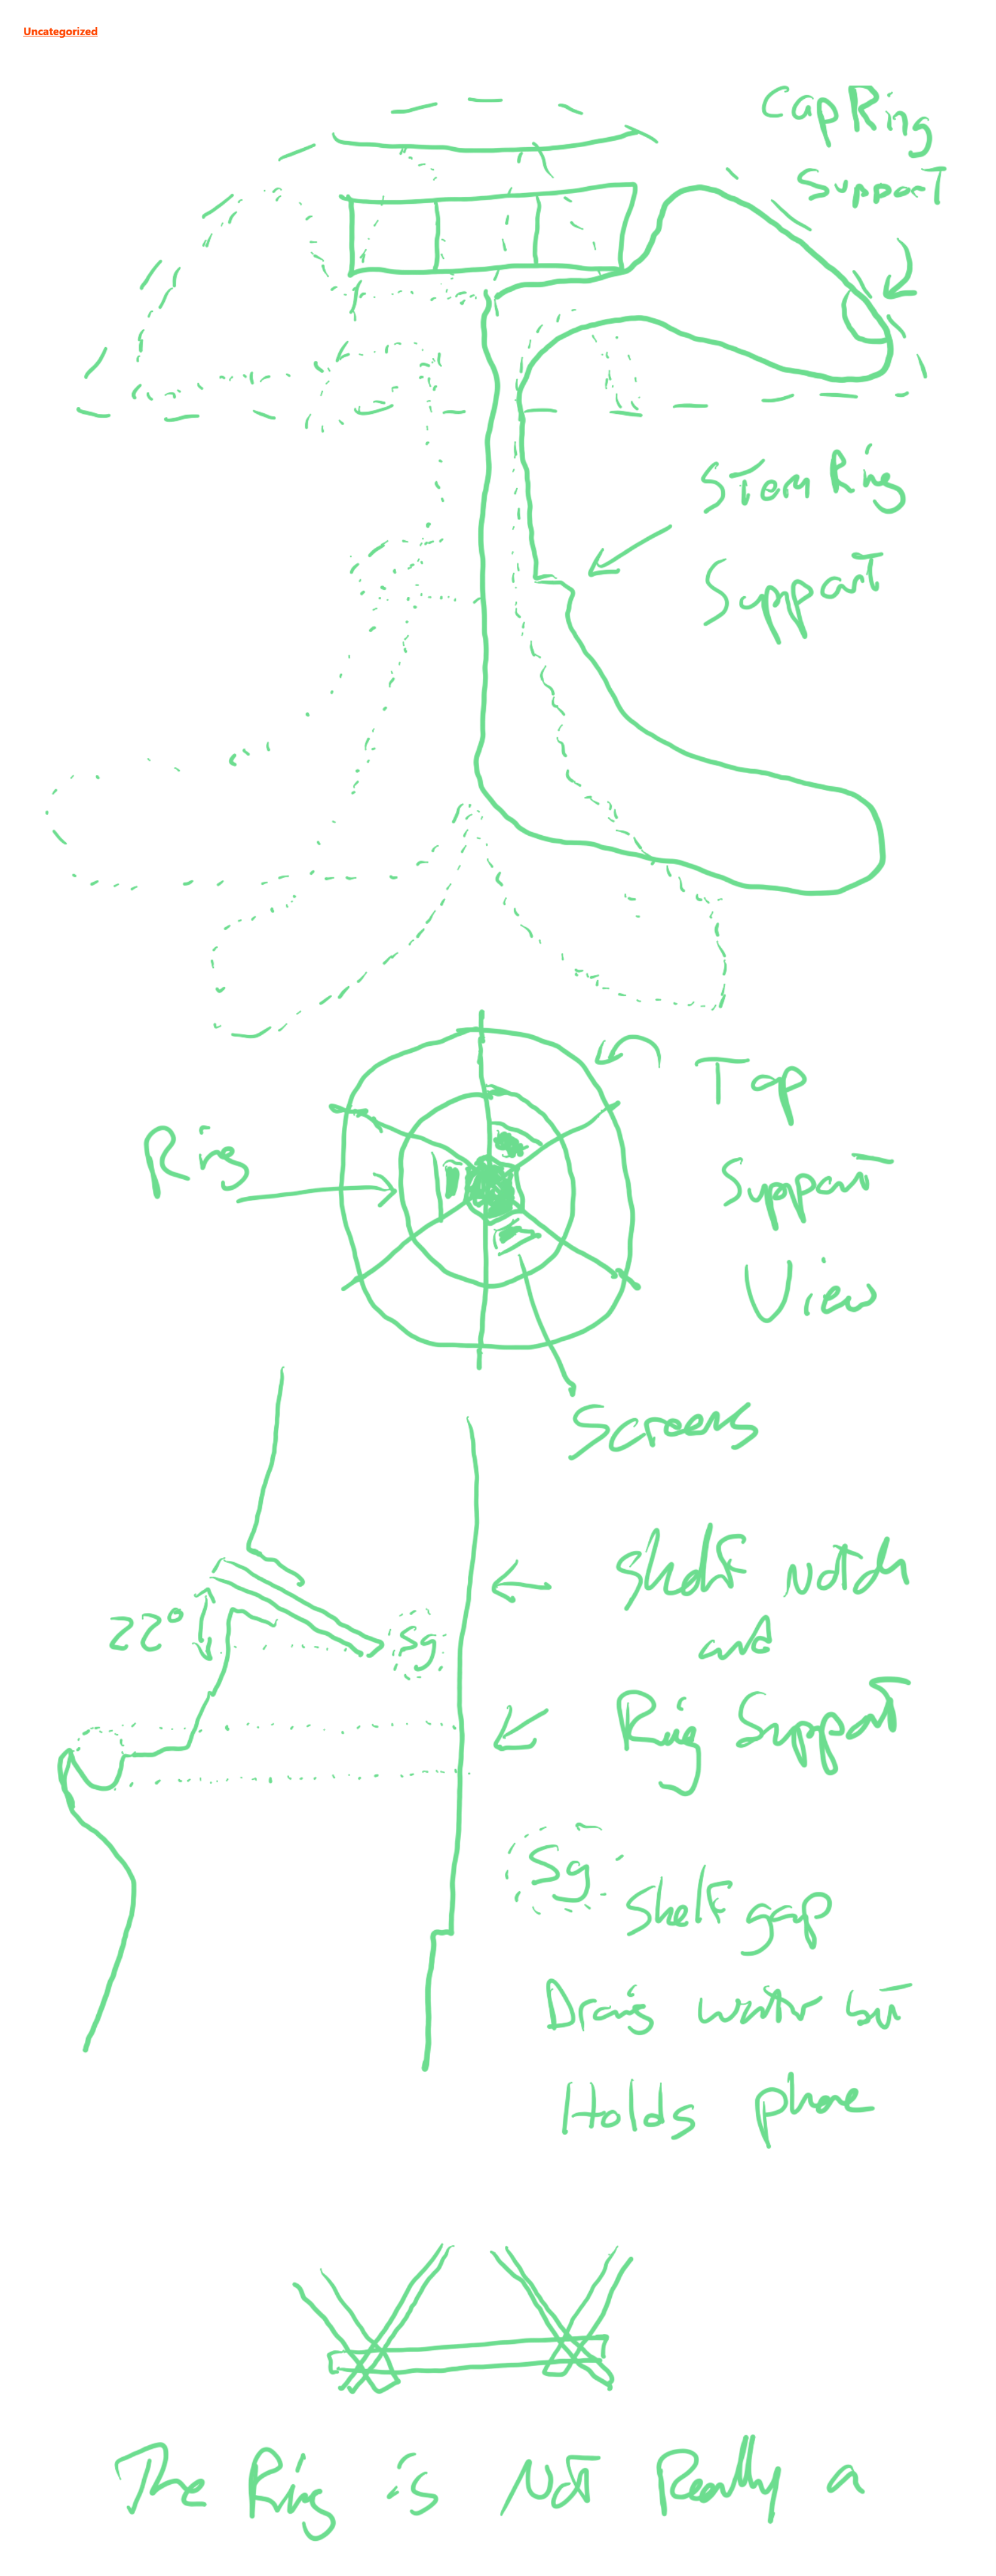 Uncategorized
Cap Ring
Support
Stem Ring
Support
Top
Ring
Support
View
Screens
Shelf notch
22°
sg
and
Ring Support
Sg
Shelf gap
Drains water but
Holds phone
The Ring is Not Really a